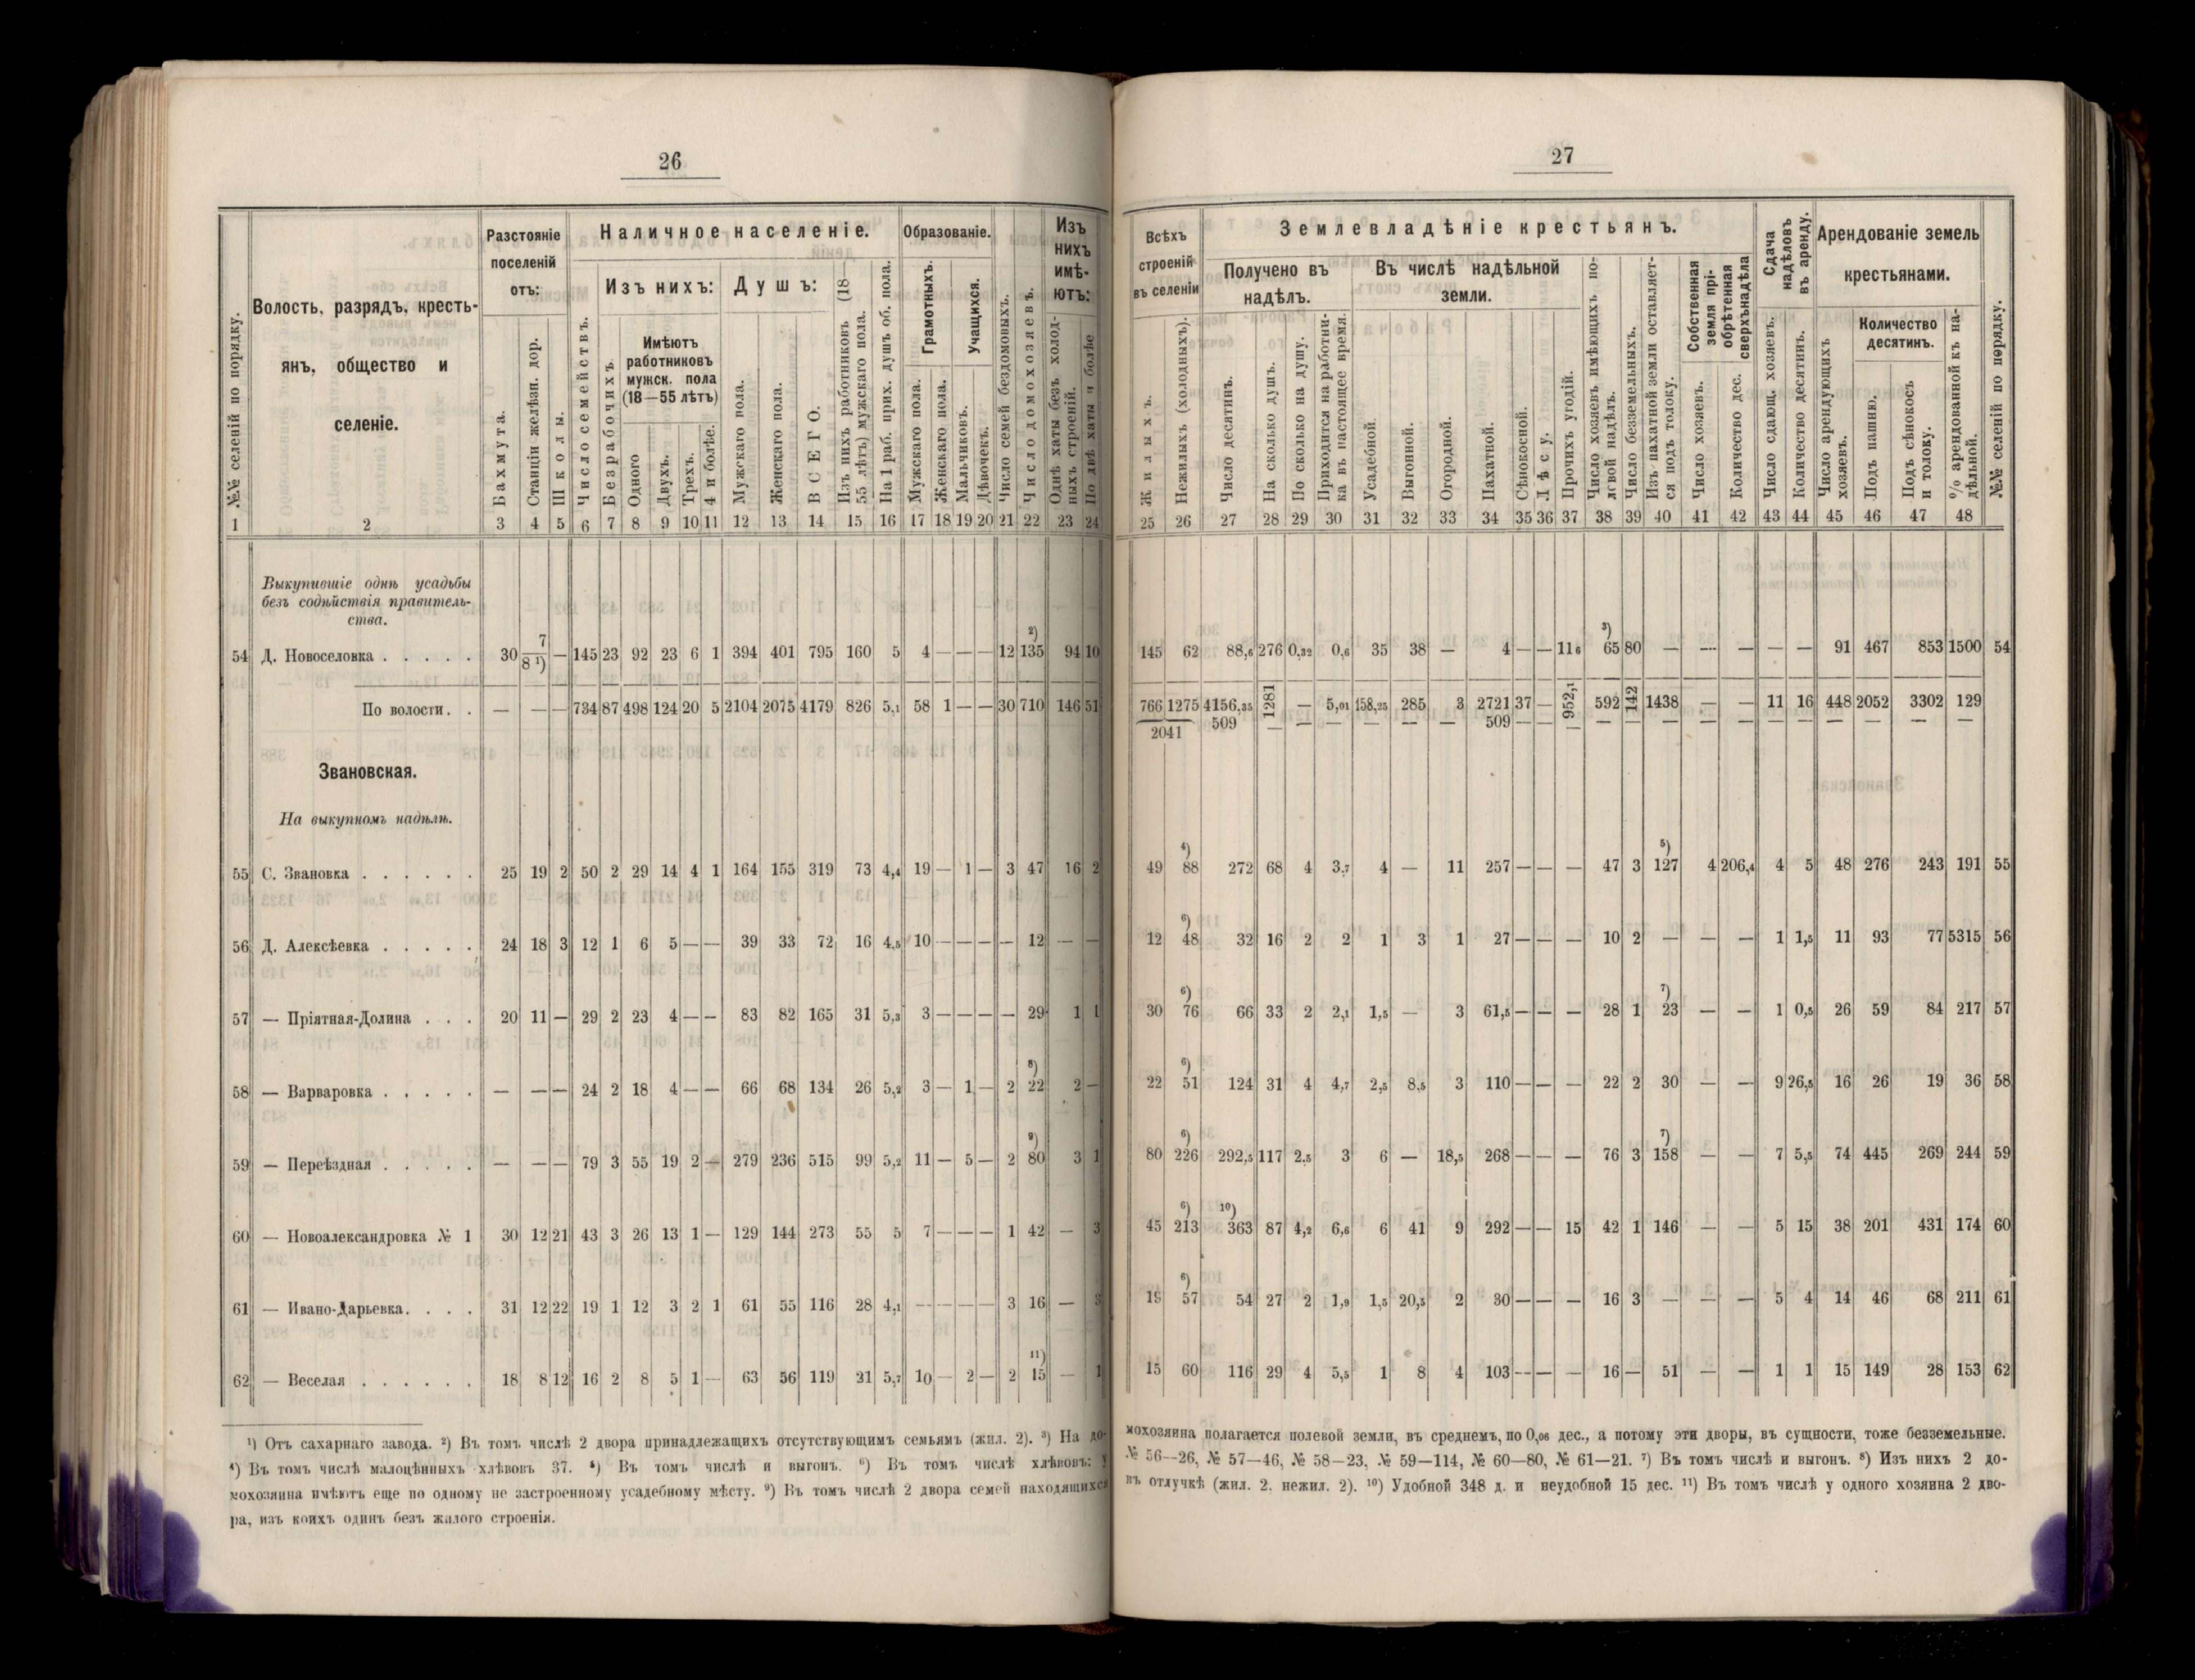 26
№№ селеній по порядку.
Волость, разрядъ, кресть-
янъ, общество и
селеніе.
Разстояніе
поселеній
отъ:
Бахмута.
Станціи желѣзн. дор.
Школы.
Наличное населеніе.
Число семействъ.
Изъ нихъ:
Безрабочихъ.
Имѣютъ
работниковъ
мужск. пола
(18—55 лѣтъ)
Одного
Двухъ.
Трехъ.
4 и болѣе.
Душъ:
Мужскаго пола.
Женскаго пола.
ВСЕГО.
Изъ нихъ работниковъ (18
55 лѣтъ) мужскаго пола.
На 1 раб. прих. душъ об. пола.
Образованіе.
Грамотныхъ.
Мужскаго пола.
Женскаго пола.
Учащихся.
Мальчиковъ.
Дѣвочекъ.
Число семей бездомовыхъ.
Число домохозяевъ.
Изъ
нихъ
имѣ-
ютъ:
Однѣ хаты безъ холод-
ныхъ строеній.
По двѣ хаты и болѣе
1 2 3 4 5 6 7 8 9 10 11 12 13 14 15 16 17 18 19 20 21 22 23 24
Выкупившіе однѣ усадьбы
безъ содѣйствія правитель-
ства.
54 Д. Новоселовка . . . . . 30 7/8 ¹) — 145 23 92 23 6 1 394 401 795 160 5 4 — — — 12 ²) 135 94 10
По волости. . — — — 734 87 498 124 20 5 2104 2075 4179 826 5,1 58 1 — — 30 710 146 51
Звановская.
На выкупномъ надѣлѣ.
55 С. Звановка . . . . . . 25 19 2 50 2 29 14 4 1 164 155 319 73 4,4 19 — 1 — 3 47 16 2
56 Д. Алексѣевка . . . . . 24 18 3 12 1 6 5 — — 39 33 72 16 4,5 10 — — — — 12 — —
57 — Пріятная-Долина . . . 20 11 — 29 2 23 4 — — 83 82 165 31 5,3 3 — — — — 29 1 1
58 — Варваровка . . . . . — — — 24 2 18 4 — — 66 68 134 26 5,2 3 — 1 — 2 ⁸) 22 2 —
59 — Переѣздная . . . . . — — — 79 3 55 19 2 — 279 236 515 99 5,2 11 — 5 — 2 ⁹) 80 3 1
60 — Новоалександровка № 1 30 12 21 43 3 26 13 1 — 129 144 273 55 5 7 — — — 1 42 — 3
61 — Ивано-Дарьевка. . . . 31 12 22 19 1 12 3 2 1 61 55 116 28 4,1 — — — — 3 16 — 3
62 — Веселая . . . . . . 18 8 12 16 2 8 5 1 — 63 56 119 21 5,7 10 — 2 — 2 ¹¹) 15 — 1
¹) Отъ сахарнаго завода. ²) Въ томъ числѣ 2 двора принадлежащихъ отсутствующимъ семьямъ (жил. 2). ³) На до-
⁴) Въ томъ числѣ малоцѣнныхъ хлѣвовъ 37. ⁵) Въ томъ числѣ и выгонъ. ⁶) Въ томъ числѣ хлѣвовъ: у
мохозяина имѣютъ еще по одному не застроенному усадебному мѣсту. ⁹) Въ томъ числѣ 2 двора семей находящихся
ра, изъ коихъ одинъ безъ жилого строенія.
27
Всѣхъ
строеній
въ селеніи
Жилыхъ.
Нежилыхъ (холодныхъ).
Землевладѣніе крестьянъ.
Получено въ
надѣлъ.
Число десятинъ.
На сколько душъ.
По сколько на душу.
Приходится на работни-
ка въ настоящее время.
Въ числѣ надѣльной
земли.
Усадебной.
Выгонной.
Огородной.
Пахатной.
Сѣнокосной.
Лѣсу.
Прочихъ угодій.
Число хозяевъ имѣющихъ по-
левой надѣлъ.
Число безземельныхъ.
Изъ пахатной земли оставляет-
ся подъ толоку.
Собственная
земля прі-
обрѣтенная
сверхънадѣла
Число хозяевъ.
Количество дес.
Сдача
надѣловъ
въ аренду.
Число сдающ. хозяевъ.
Количество десятинъ.
Арендованіе земель
крестьянами.
Число арендующихъ
хозяевъ.
Количество
десятинъ.
Подъ пашню.
Подъ сѣнокосъ
и толоку.
% арендованной къ на-
дѣльной.
№№ селеній по порядку.
25 26 27 28 29 30 31 32 33 34 35 36 37 38 39 40 41 42 43 44 45 46 47 48
145 62 88,6 276 0,32 0,6 35 38 — 4 — — 11 6 ³) 65 80 — — — — — 91 467 853 1500 54
766 1275 4156,35 1281 — 5,01 158,25 285 3 2721 37 — 952,1 592 142 1438 — — 11 16 448 2052 3302 129
2041 509 — — — — — — 509 — — — — — — — — — — — — — —
49 ⁴) 88 272 68 4 3,7 4 — 11 257 — — — 47 3 ⁵) 127 4 206,4 4 5 48 276 243 191 55
12 ⁶) 48 32 16 2 2 1 3 1 27 — — — 10 2 — — — 1 1,5 11 93 77 5315 56
30 ⁶) 76 66 33 2 2,1 1,5 — 3 61,5 — — — 28 1 ⁷) 23 — — 1 0,5 26 59 84 217 57
22 ⁶) 51 124 31 4 4,7 2,5 8,5 3 110 — — — 22 2 30 — — 9 26,5 16 26 19 36 58
80 ⁶) 226 292,5 117 2,5 3 6 — 18,5 268 — — — 76 3 ⁷) 158 — — 7 5,5 74 445 269 244 59
45 ⁶) 213 ¹⁰) 363 87 4,2 6,6 6 41 9 292 — — 15 42 1 146 — — 5 15 38 201 431 174 60
18 ⁶) 57 54 27 2 1,9 1,5 20,5 2 30 — — — 16 3 — — — 5 4 14 46 68 211 61
15 60 116 29 4 5,5 1 8 4 103 — — — 16 — 51 — — 1 1 15 149 28 153 62
мохозяина полагается полевой земли, въ среднемъ, по 0,06 дес., а потому эти дворы, въ сущности, тоже безземельные.
№ 56—26, № 57—46, № 58—23, № 59—114, № 60—80, № 61—21. ⁷) Въ томъ числѣ и выгонъ. ⁸) Изъ нихъ 2 до-
въ отлучкѣ (жил. 2. нежил. 2). ¹⁰) Удобной 348 д. и неудобной 15 дес. ¹¹) Въ томъ числѣ у одного хозяина 2 дво-